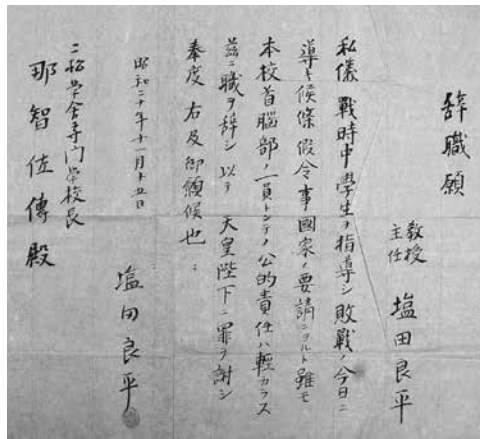 辞職願
教授
主任
塩田良平
私儀 戦時中學生ヲ指導シ敗戦ノ今日ニ
導キ候條假令事國家ノ要請ニヨルト雖モ
本校首脳部ノ一員トシテノ公的責任ハ輕カラス
茲ニ職ヲ辞シ以テ 天皇陛下ニ罪ヲ謝シ
奉度 右及御願候也
昭和二十年十一月十五日
塩田良平
二松学舎専門学校長
那智佐傳殿